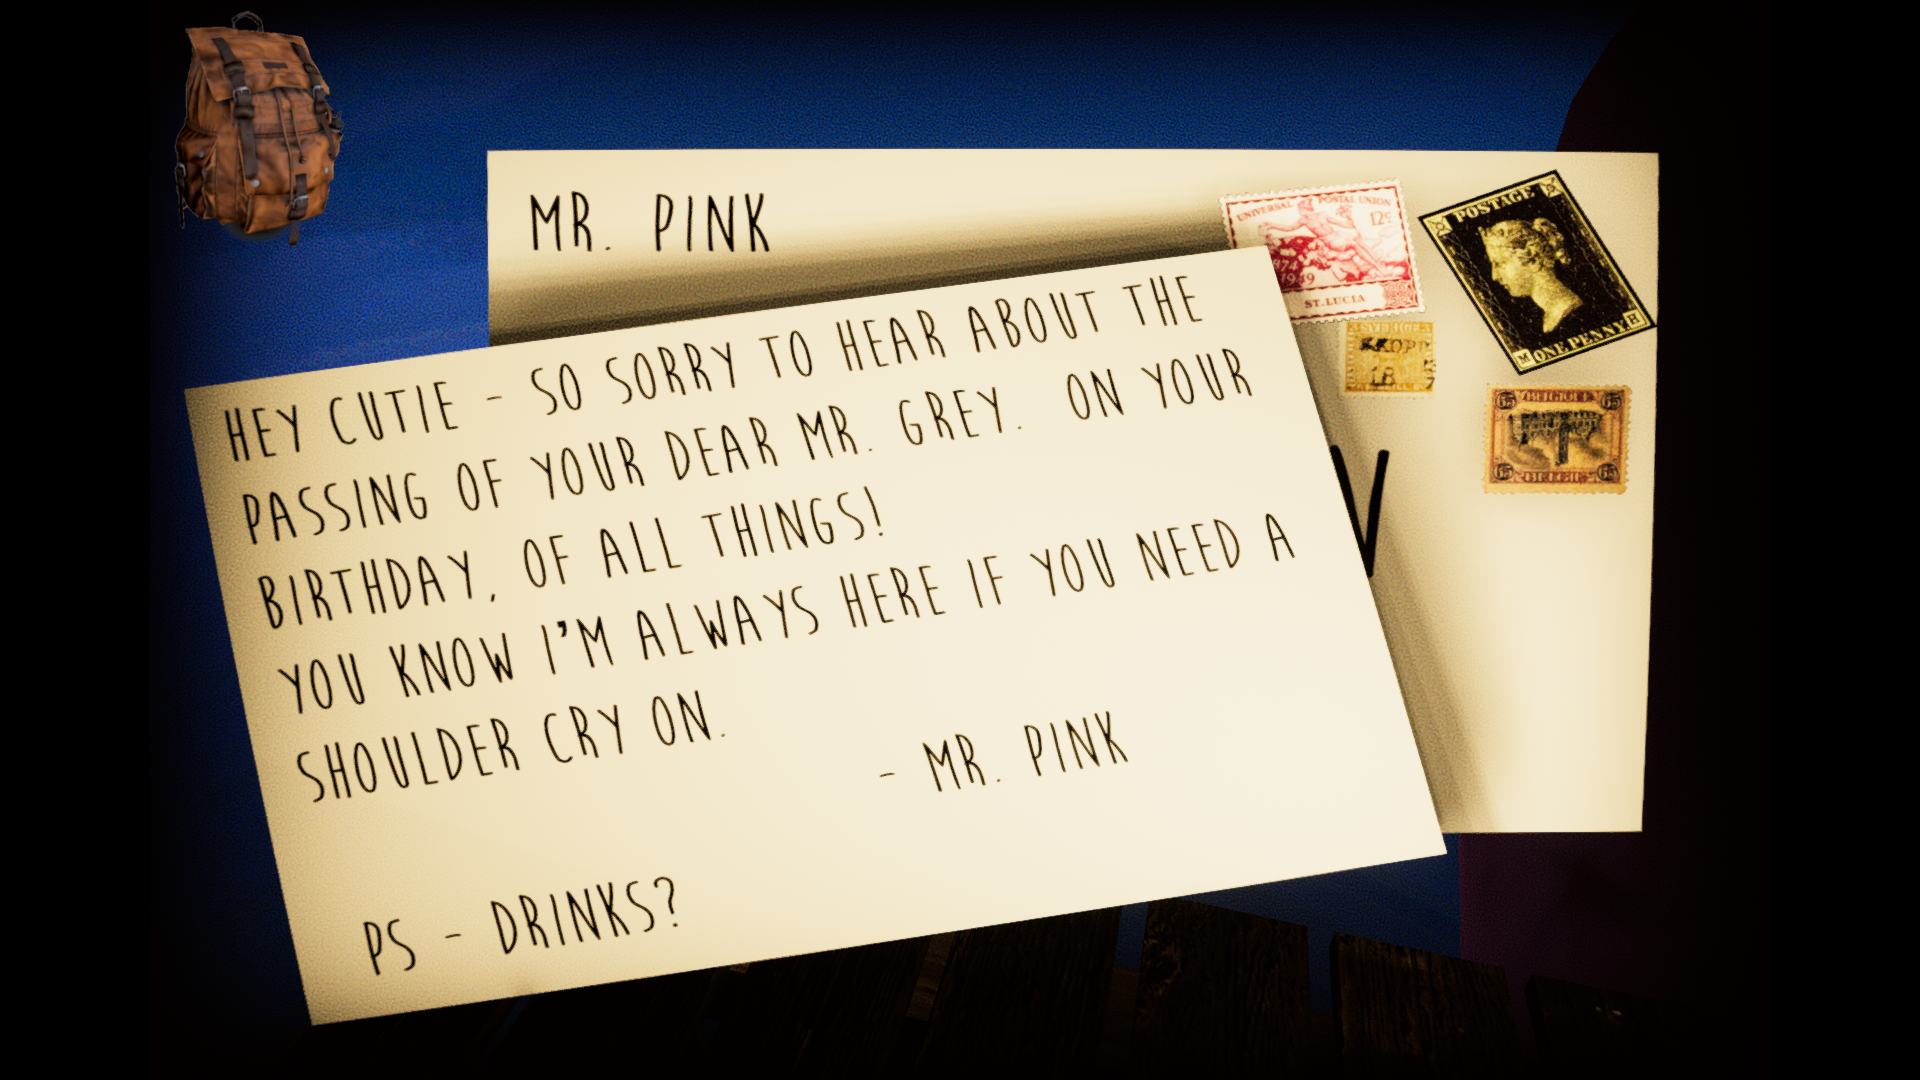 MR. PINK
UNIVERSAL POSTAL UNION
12¢
1949
ST. LUCIA
POSTAGE
ONE PENNY
HEY CUTIE - SO SORRY TO HEAR ABOUT THE
PASSING OF YOUR DEAR MR. GREY. ON YOUR
BIRTHDAY, OF ALL THINGS!
YOU KNOW I'M ALWAYS HERE IF YOU NEED A
SHOULDER CRY ON.
- MR. PINK
PS - DRINKS?
65 BELGIQUE 65
65 BELGIE 65